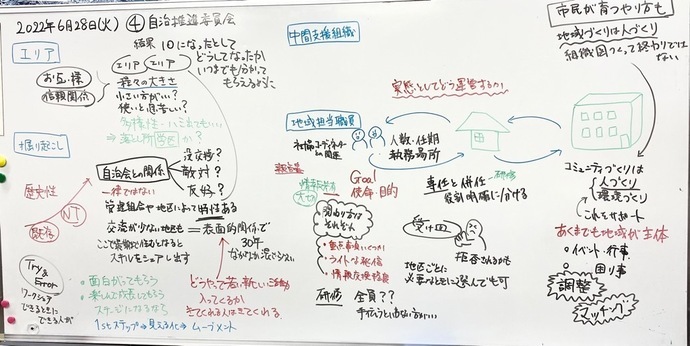 2022年6月28日(火) ④自治推進委員会
エリア
お互い様
信頼関係
結果 10になったとして
どうしてなったか
いつまでも分かって
もらえるように
エリア エリア
種々の大きさ
小さい方がいい?
使いと息苦しい?
多様性…ハミ出てもいい
⇒落とし所 学区 か?
掘り起こし
自治会との関係
没交渉?
敵対?
友好?
一様ではない
歴史性
NT
既存
管理組合や地区によって特性ある
交流が少ない地区も
=表面的関係で
30年
ながれが混じらない
スキルをシェア し出す
Try&
Error
ワークショップ
できるときに
できる人が
・面白がってもらう
・楽しんで成長してもらう
ステージになるなら
どうやって若い新しい活動
入ってくるか
きてくれる人はきてくれる。
1stステップ→見える化→ムーブメント
中間支援組織
実態としてどう運営するか
地域担当職員
人数・任期
執務場所
Goal
使命・目的
情報共有
大切
関わり方は
それぞれ
・重点事項いくつか
・ライトな発信
・情報交換程度
研修 全員??
専任と併任
役割明確に分ける
研修
受け皿
拒否されるかも
地区ごとに
必要なときに選んでも可
市民が育つやり方も
地域づくりは人づくり
組織図つくって終わりでは
ない
コミュニティづくりは
人づくり
環境づくり
これをサポート
あくまでも地域が主体
・イベント・行事
・困り事
調整
マッチング